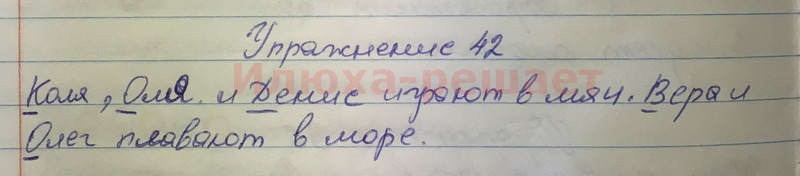 Упражнение 42
Илюха-решает
Коля, Оля и Денис играют в мяч. Вера и
Олег плавают в море.